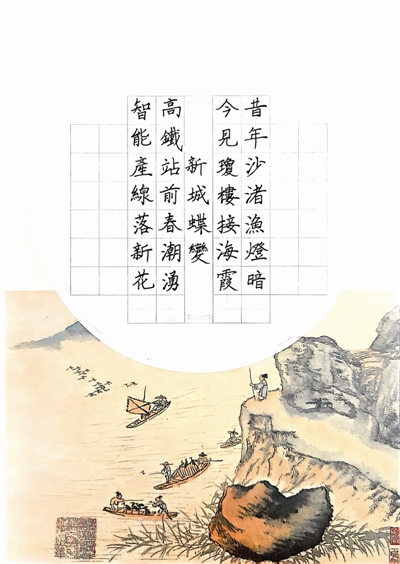 昔年沙渚漁燈暗
今見瓊樓接海霞
新城蝶變
高鐵站前春潮湧
智能產線落新花